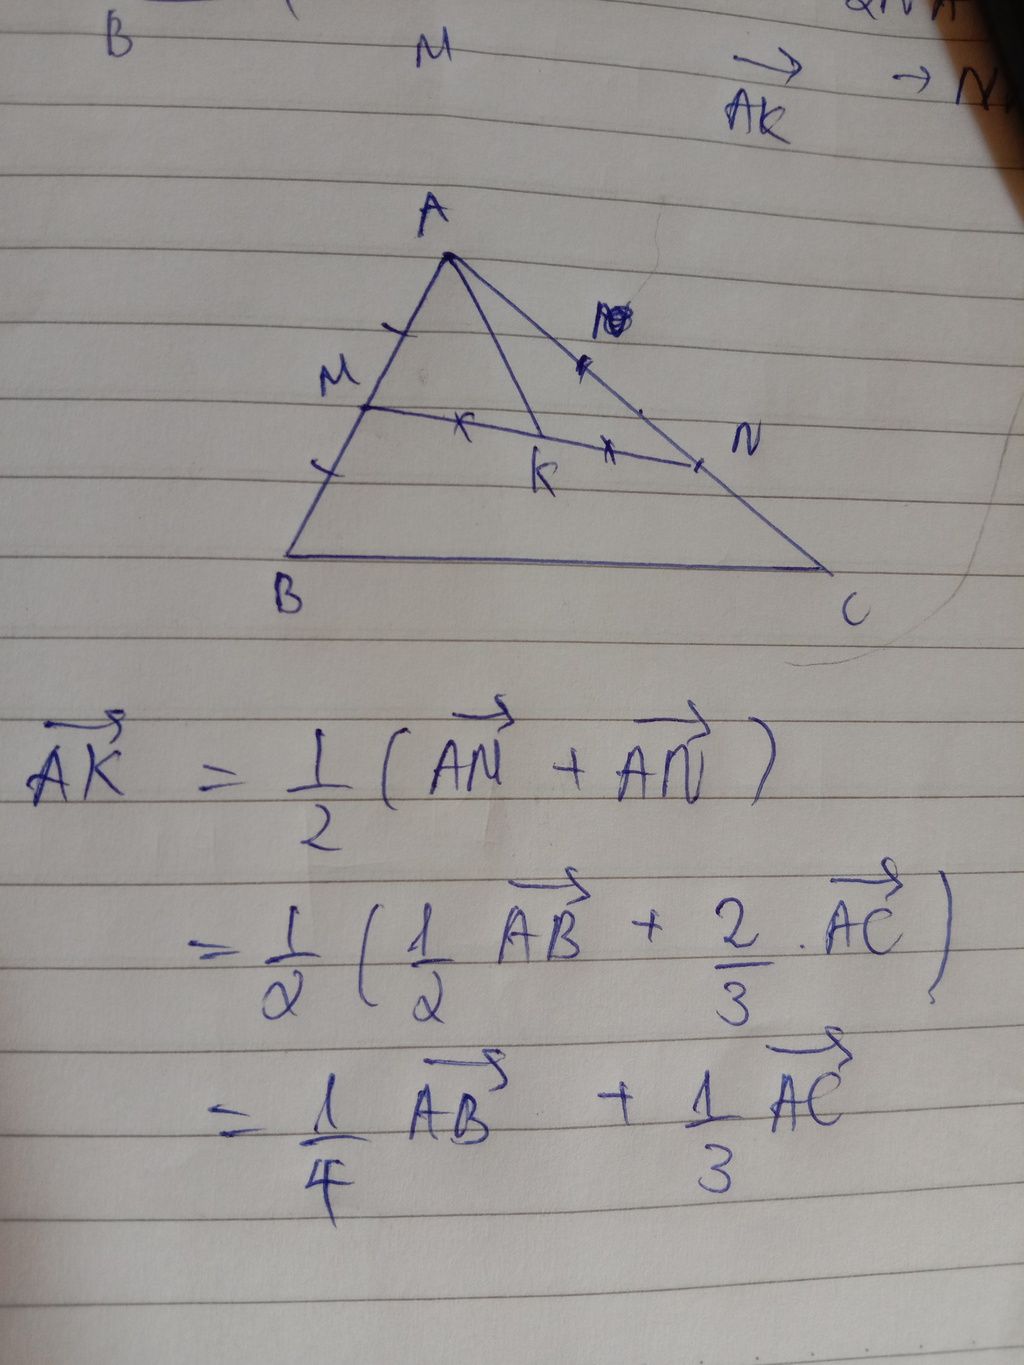 B M
AK → N
A
M
N
K
B
C
AK = 1/2 (AM + AN)
= 1/2 (1/2 AB + 2/3 . AC)
= 1/4 AB + 1/3 AC